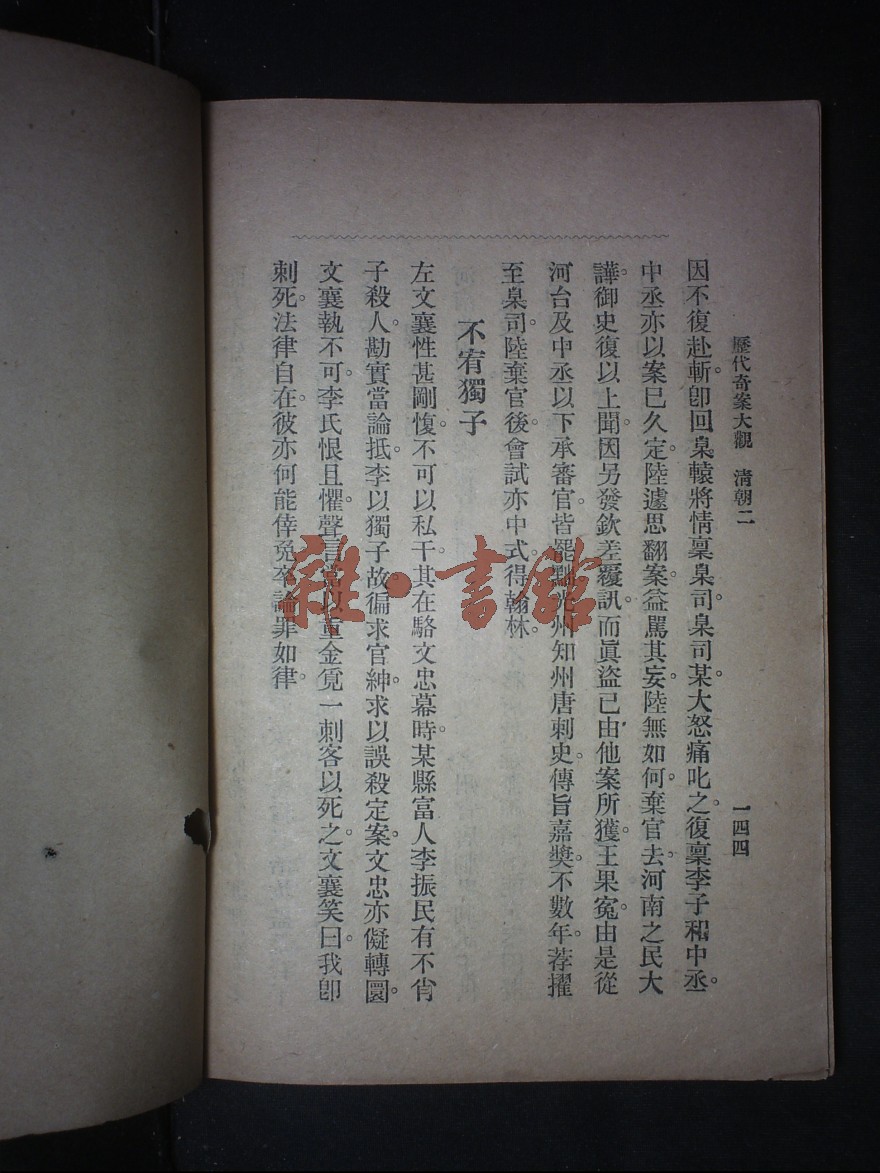 歷代奇案大觀　清朝二　一四四
因不復赴斬。卽回臬轅將情稟臬司。臬司某大怒痛叱之。復稟李子和中丞。
中丞亦以案已久定。陸遽思翻案。益罵其妄。陸無如何。棄官去。河南之民大
譁。御史復以上聞。因另發欽差覆訊。而眞盜已由他案所獲。王果寃。由是從
河台及中丞以下承審官。皆罷黜。光州知州唐刺史。傳旨嘉奬。不數年。荐擢
至臬司。陸棄官後。會試亦中式。得翰林。
不宥獨子
左文襄性甚剛愎。不可以私干。其在駱文忠幕時。某縣富人李振民有不肖
子殺人。勘實當論抵。李以獨子故。徧求官紳。求以誤殺定案。文忠亦儗轉圜。
文襄執不可。李氏恨且懼。聲言當以重金覓一刺客以死之。文襄笑曰。我卽
刺死。法律自在。彼亦何能倖免。卒論罪如律。
雜·書館